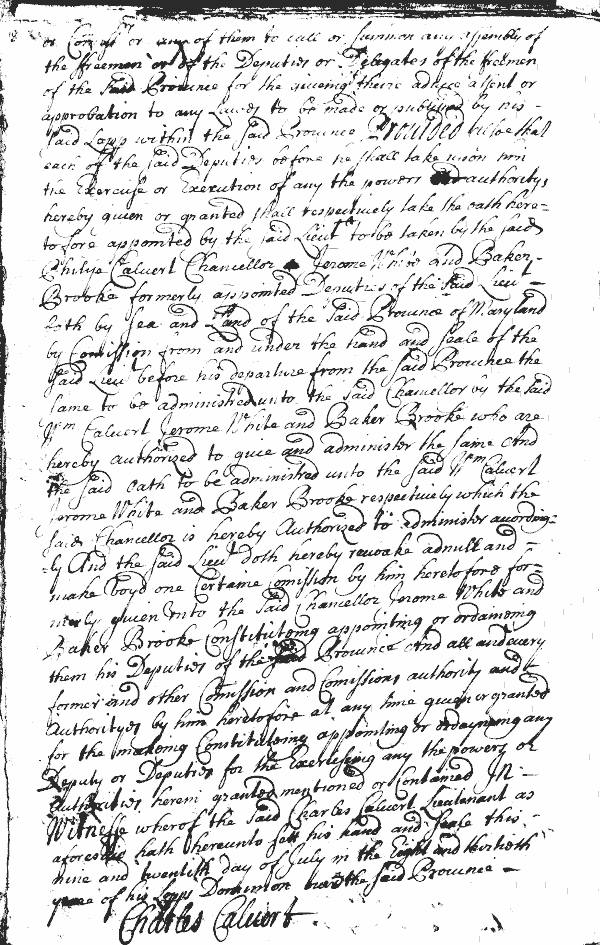 or Consent or any of them to call or summon any assembly of
the freemen or of the Deputies or Delegates of the freemen
of the said Province for the giveing theire advice assent or
approbation to any Lawes to be made or published by his -
said Lopp within the said Province Provided that
each of the said Deputies before he shall take upon him
the Exercise or Execution of any the powers authoritys
hereby given or granted shall respectively take the oath here=
tofore appointed by the said Lieut to be taken by the said
Philip Calvert Chancellor Jerome White and Baker
Brooke formerly appointed Deputies of the said Lieut
both by sea and Land of the said Province of Maryland
by Comission from and under the hand and seale of the
said Lieut before his departure from the said Province the
same to be administred unto the said Chancellor by the said
Wm Calvert Jerome White and Baker Brooke who are
hereby authorized to give and administer the same And
the said oath to be administred unto the said Wm Calvert
Jerome White and Baker Brooke respectively which the
said Chancellor is hereby Authorized to administer according=
=ly And the said Lieut doth hereby revoake adnull and
make voyd one Certaine Comission by him heretofore for=
merly given unto the said Chancellor Jerome White and
Baker Brooke Constituteing appointing or ordaineing
them his Deputies of the said Province And all and every
former and other Comission and Comissions authority and
Authorityes by him heretofore at any time given or granted
for the makeing Constituteing appointing or ordayneing any
Deputy or Deputies for the Exercising any the powers or
Authorities herein granted mentioned or Contained In
Witnesse wherof the said Charles Calvert Lieutenant as
aforesaid hath hereunto sett his hand and seale this
nine and twentieth day of July in the Eight and thirtieth
yeare of his Lopps Dominion over the said Province
Charles Calvert